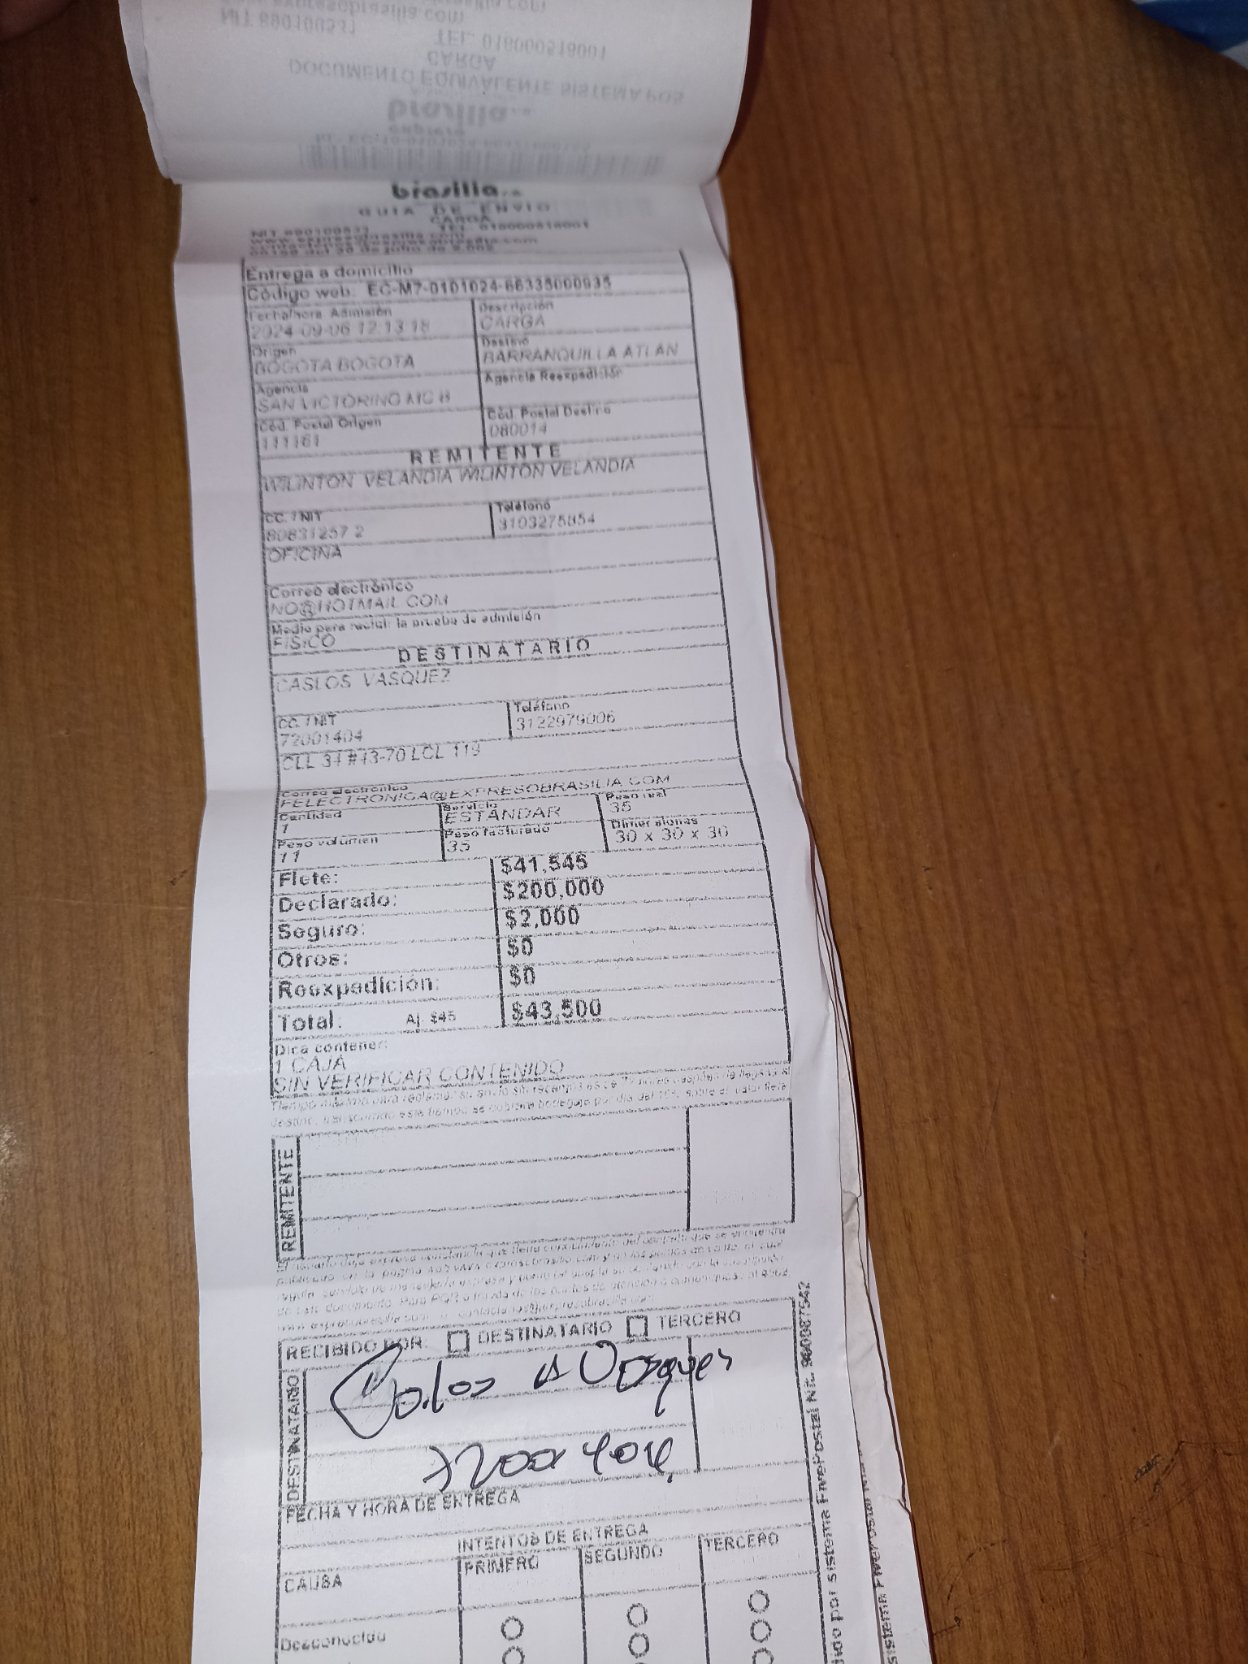 NIT 890100531
TEL. 018000518001
CARGA
DOCUMENTO EQUIVALENTE SISTEMA POS
brasilia
brasilia
GUIA DE ENVIO
CARGA
NIT 890100531 TEL. 018000518001
Entrega a domicilio
Código web: EC-M7-0101024-66335000935
Fecha/hora Admisión Descripción
2024-09-06 12:13:18 CARGA
Origen Destino
BOGOTA BOGOTA BARRANQUILLA ATLAN
Agencia Agencia Reexpedición
SAN VICTORINO MC B
Cód. Postal Origen Cód. Postal Destino
111161 080014
REMITENTE
WILINTON VELANDIA WILINTON VELANDIA
CC. / NIT Teléfono
80831257 2 3103275854
OFICINA
Correo electrónico
NO@HOTMAIL.COM
Medio para recibir la prueba de admisión
FISICO
DESTINATARIO
CASLOS VASQUEZ
CC. / NIT Teléfono
72001404 3122979006
CLL 34 #43-70 LCL 119
Correo electrónico
FELECTRONICA@EXPRESOBRASILIA.COM
Cantidad Servicio Peso real
1 ESTANDAR 35
Peso volumen Peso facturado Dimensiones
11 35 30 x 30 x 30
Flete: $41,545
Declarado: $200,000
Seguro: $2,000
Otros: $0
Reexpedición: $0
Total: Aj $45 $43,500
Dice contener:
1 CAJA
SIN VERIFICAR CONTENIDO
REMITENTE
RECIBIDO POR DESTINATARIO TERCERO
DESTINATARIO
Carlos A Vasquez
72001404
FECHA Y HORA DE ENTREGA
INTENTOS DE ENTREGA
CAUSA PRIMERO SEGUNDO TERCERO
Desconocido
sistema FivePostal Nit. 900087542